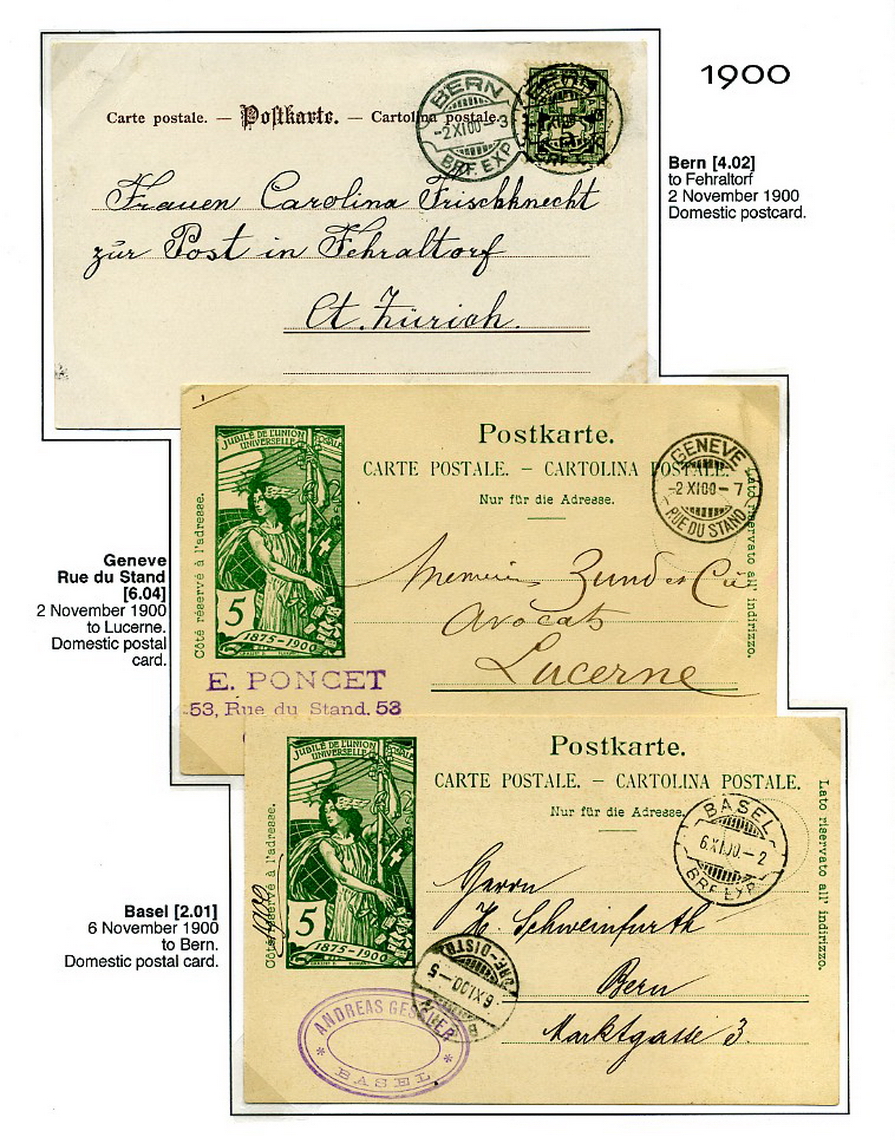 1900
Carte postale. — Postkarte. — Cartolina postale.
BERN
-2 XI 00-3
BRF. EXP.
BERN
BRF. EXP.
Frauen Carolina Frischknecht
zur Post in Fehraltorf
Ct. Zürich.
Bern [4.02]
to Fehraltorf
2 November 1900
Domestic postcard.
JUBILÉ DE L'UNION POSTALE
UNIVERSELLE
5
1875-1900
Côté réservé à l'adresse.
Postkarte.
CARTE POSTALE. — CARTOLINA POSTALE.
Nur für die Adresse.
GENEVE
-2 XI 00-7
RUE DU STAND
Lato riservato all' indirizzo.
Zünd et Cie
Avocats
Lucerne
E. PONCET
53, Rue du Stand. 53
Geneve
Rue du Stand
[6.04]
2 November 1900
to Lucerne.
Domestic postal
card.
JUBILÉ DE L'UNION POSTALE
UNIVERSELLE
5
1875-1900
Côté réservé à l'adresse.
Postkarte.
CARTE POSTALE. — CARTOLINA POSTALE.
Nur für die Adresse.
BASEL
6 XI 00.-2
BRF. EXP.
Lato riservato all' indirizzo.
Herrn
H. Schweinfurth
Bern
Marktgasse 3.
6 XI 00-5
BRE-DISTR.
ANDREAS
BASEL
Basel [2.01]
6 November 1900
to Bern.
Domestic postal card.